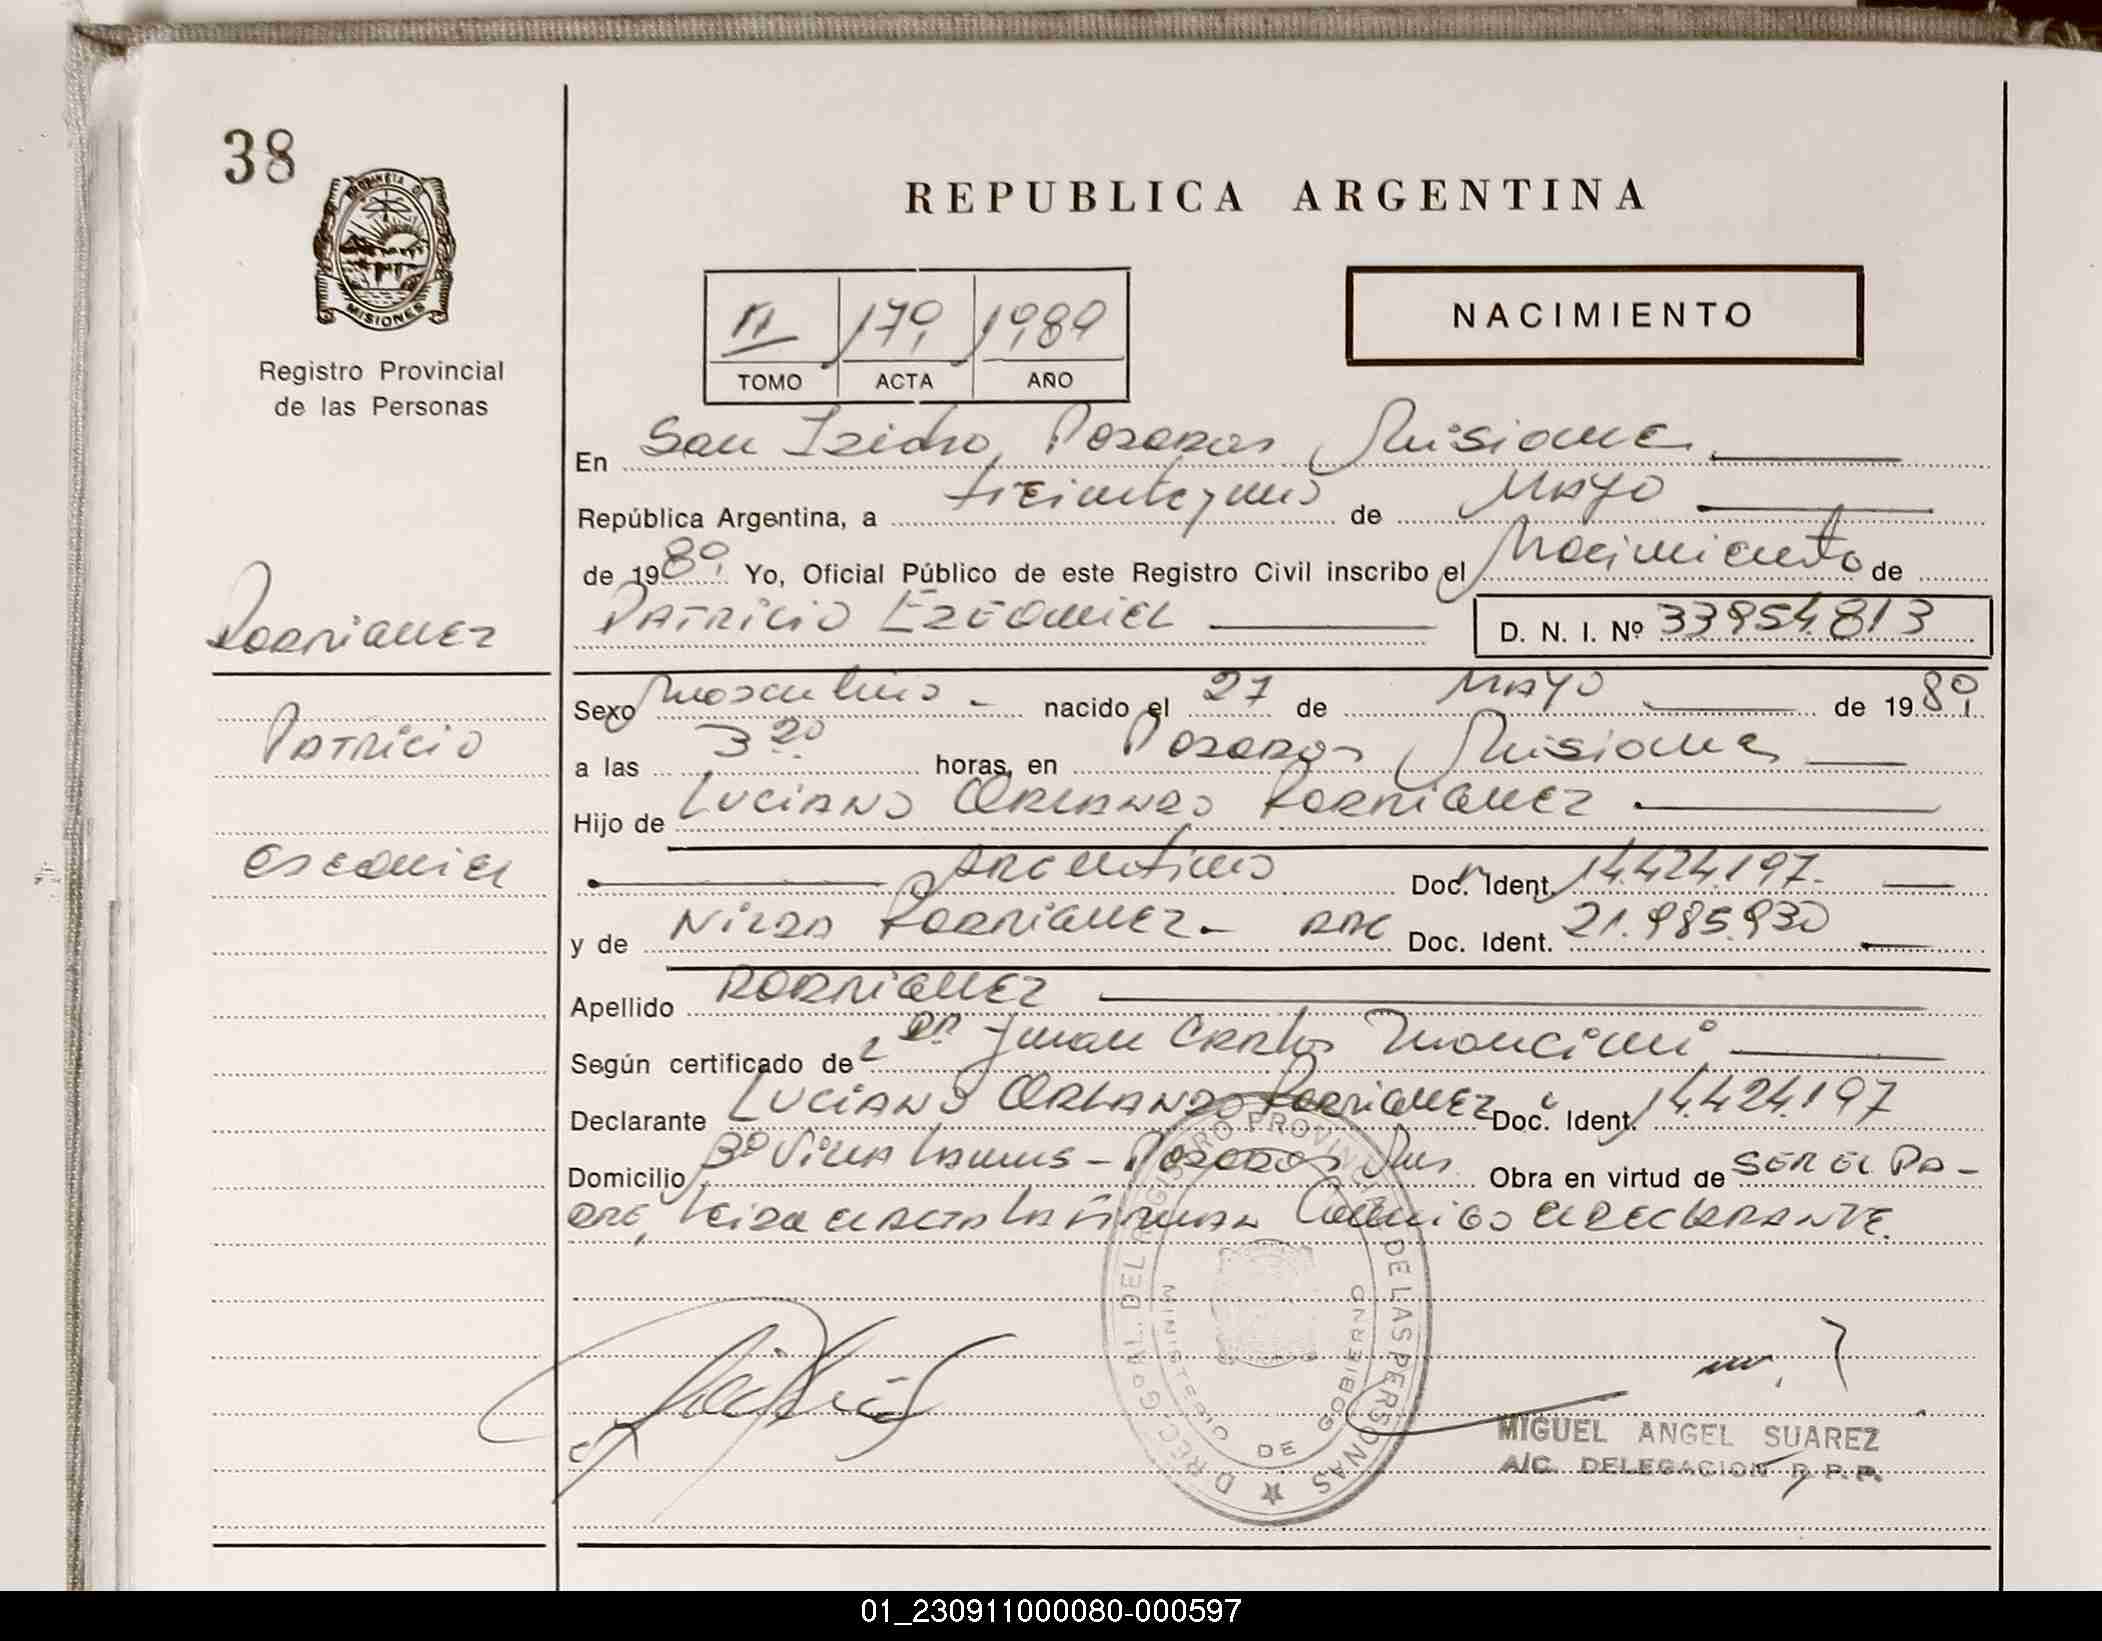 38
PROVINCIA DE
MISIONES
Registro Provincial
de las Personas
REPUBLICA ARGENTINA
NACIMIENTO
II 179 1989
TOMO ACTA AÑO
En San Isidro, Posadas Misiones
República Argentina, a treintayuno de Mayo
de 1989 Yo, Oficial Público de este Registro Civil inscribo el Nacimiento de
PATRICIO EZEQUIEL D. N. I. Nº 33954.813
RODRIGUEZ
PATRICIO
EZEQUIEL
Sexo Masculino - nacido el 27 de MAYO de 1989
a las 3 20 horas, en Posadas Misiones
Hijo de LUCIANO ORLANDO RODRIGUEZ
ARGENTINO Doc. Ident. 14.424.197.
y de NILDA RODRIGUEZ - ARG Doc. Ident. 21.985.930
Apellido RODRIGUEZ
Según certificado de DR Juan Carlos Mancini
Declarante LUCIANO ORLANDO RODRIGUEZ Doc. Ident. 14.424.197
Domicilio Bº VILLA LANUS - Posadas Mns Obra en virtud de SER EL PA-
DRE, Leida el ACTA LA FIRMAN Conmigo el DECLARANTE.
D REC. GRAL. DEL REGISTRO PROVINCIAL DE LAS PERSONAS
MINISTERIO DE GOBIERNO
MIGUEL ANGEL SUAREZ
A/C. DELEGACION R. P. P.
01_230911000080-000597